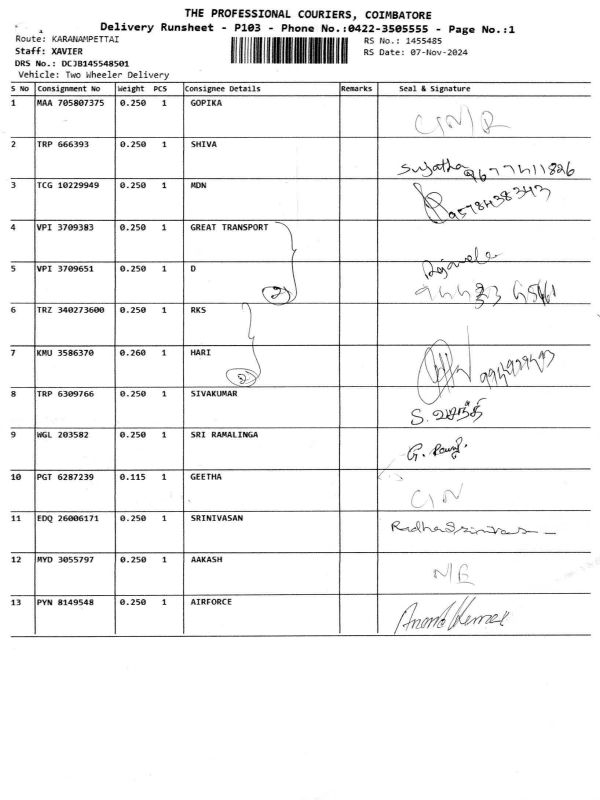 THE PROFESSIONAL COURIERS, COIMBATORE
Delivery Runsheet - P103 - Phone No.:0422-3505555 - Page No.:1
Route: KARANAMPETTAI
RS No.: 1455485
Staff: XAVIER
RS Date: 07-Nov-2024
DRS No.: DCJB145548501
Vehicle: Two Wheeler Delivery
S No Consignment No Weight PCS Consignee Details Remarks Seal & Signature
1 MAA 705807375 0.250 1 GOPIKA
2 TRP 666393 0.250 1 SHIVA Sujatha
3 TCG 10229949 0.250 1 MDN 9578438343
4 VPI 3709383 0.250 1 GREAT TRANSPORT
5 VPI 3709651 0.250 1 D 2
6 TRZ 340273600 0.250 1 RKS
7 KMU 3586370 0.260 1 HARI 2
8 TRP 6309766 0.250 1 SIVAKUMAR S. வசந்தி
9 WGL 203582 0.250 1 SRI RAMALINGA G.
10 PGT 6287239 0.115 1 GEETHA
11 EDQ 26006171 0.250 1 SRINIVASAN
12 MYD 3055797 0.250 1 AAKASH
13 PYN 8149548 0.250 1 AIRFORCE